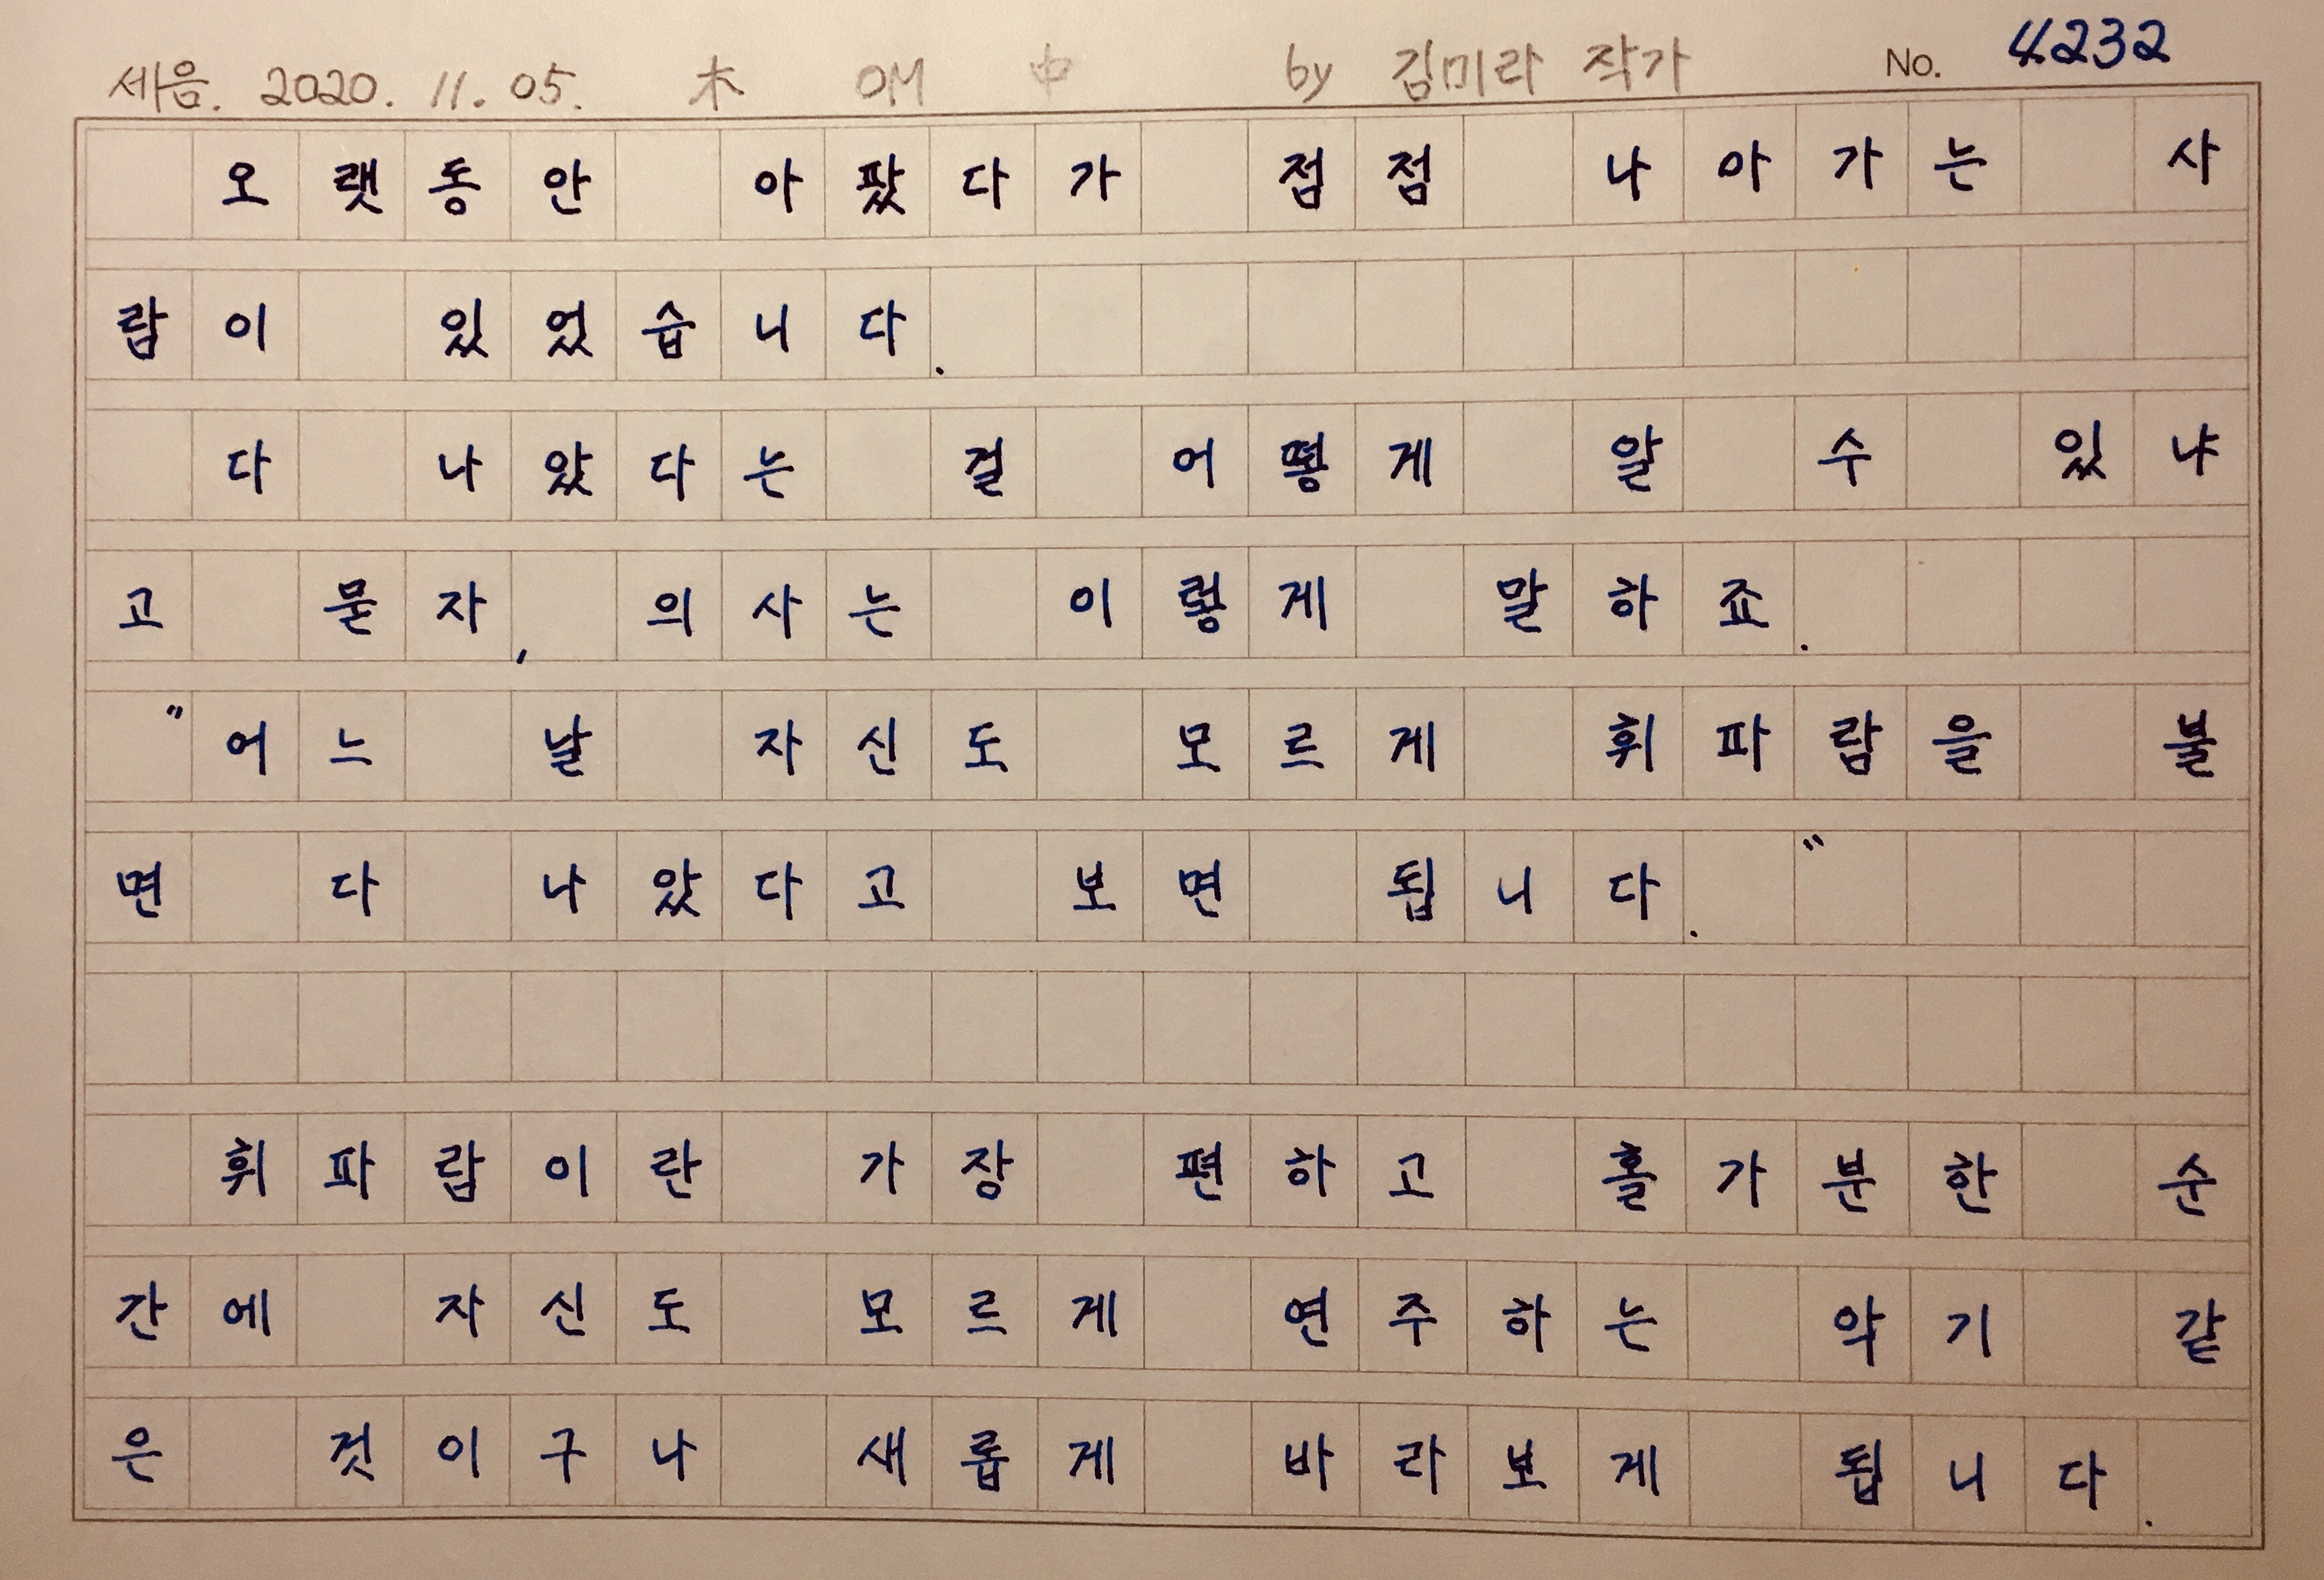 세음. 2020. 11. 05. 木 OM 中 by 김미라 작가 No. 4232
오랫동안 아팠다가 점점 나아가는 사
람이 있었습니다.
다 나았다는 걸 어떻게 알 수 있냐
고 묻자, 의사는 이렇게 말하죠.
"어느 날 자신도 모르게 휘파람을 불
면 다 나았다고 보면 됩니다."
휘파람이란 가장 편하고 홀가분한 순
간에 자신도 모르게 연주하는 악기 같
은 것이구나 새롭게 바라보게 됩니다.